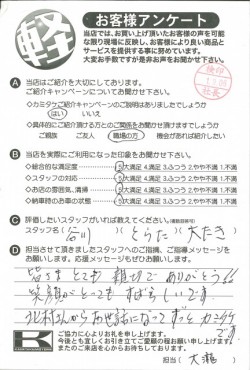 軽
お客様アンケート
当店では、お買い上げ頂いたお客様の声を可能
な限り現場に反映し、お客様により良い商品と
サービスを提供する事に努めています。
大変お手数ですが是非お声をお聞かせ下さい。
社長
A 当店はご紹介を大切にしております。
ご紹介キャンペーンについてお聞かせ下さい。
◇カミタケご紹介キャンペーンの説明はありましたでしょうか
はい いいえ
◇具体的にご紹介頂ける方とのご関係をお聞かせ頂けますでしょうか
ご親族 ご友人 職場の方 機会があれば紹介したい
B 当店を実際にご利用になった印象をお聞かせ下さい。
◇総合的な満足度 5大満足 4.満足 3.ふつう 2.やや不満 1.不満
◇スタッフの対応 5大満足 4.満足 3.ふつう 2.やや不満 1.不満
◇お店の雰囲気、清掃 5大満足 4.満足 3.ふつう 2.やや不満 1.不満
◇納車時のお車の状態 5大満足 4.満足 3.ふつう 2.やや不満 1.不満
C 評価したいスタッフがいれば教えてください。(複数回答可)
スタッフ名( 谷川 )( とらた )( 大たき )
D 担当させて頂きましたスタッフへのご指摘、ご指導メッセージを
お願いします。応援メッセージもぜひお願いします。
皆さまとても親切で ありがとう!!
笑顔がとっても すばらしいです。
北村さんからお世話になって ずっと カミタケ
です
K
ご協力に心よりお礼を申し上げます。
今後とも宜しくお引き立てご愛顧の程お願い申し上げます。
またのご来店を心からお待ちしております。
担当( 大瀧 )